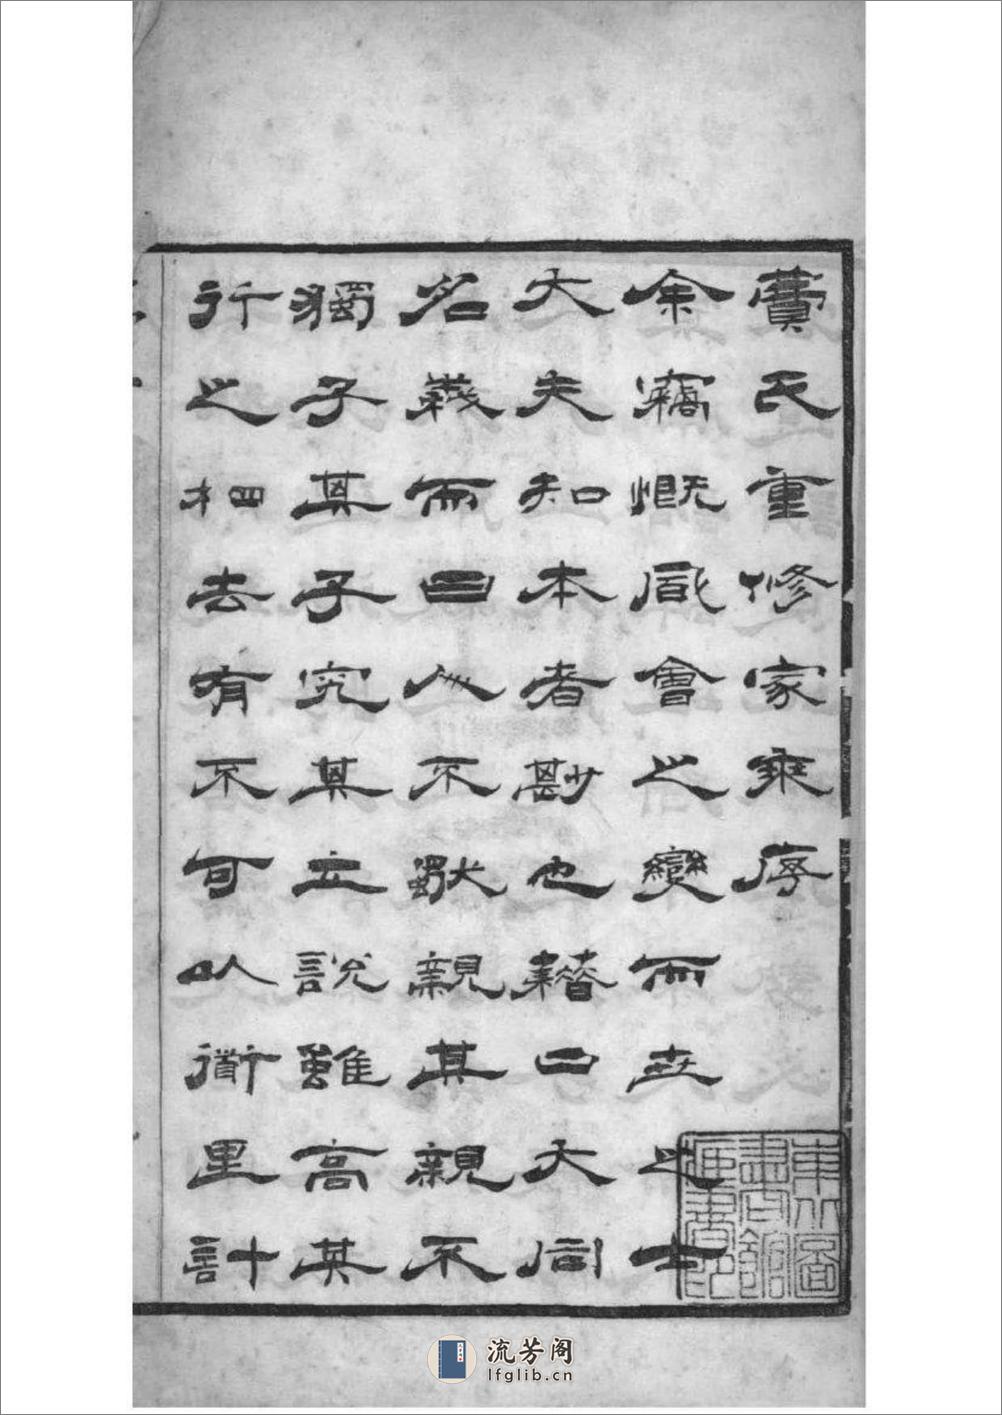 費氏重修家乘序
余竊慨風會之變而世之士
大夫知本者尠也藉口大同
名義而曰人不獨親其親不
獨子其子究其立說雖高其
行之相去有不可以衜里計
流芳阁
lfglib.cn